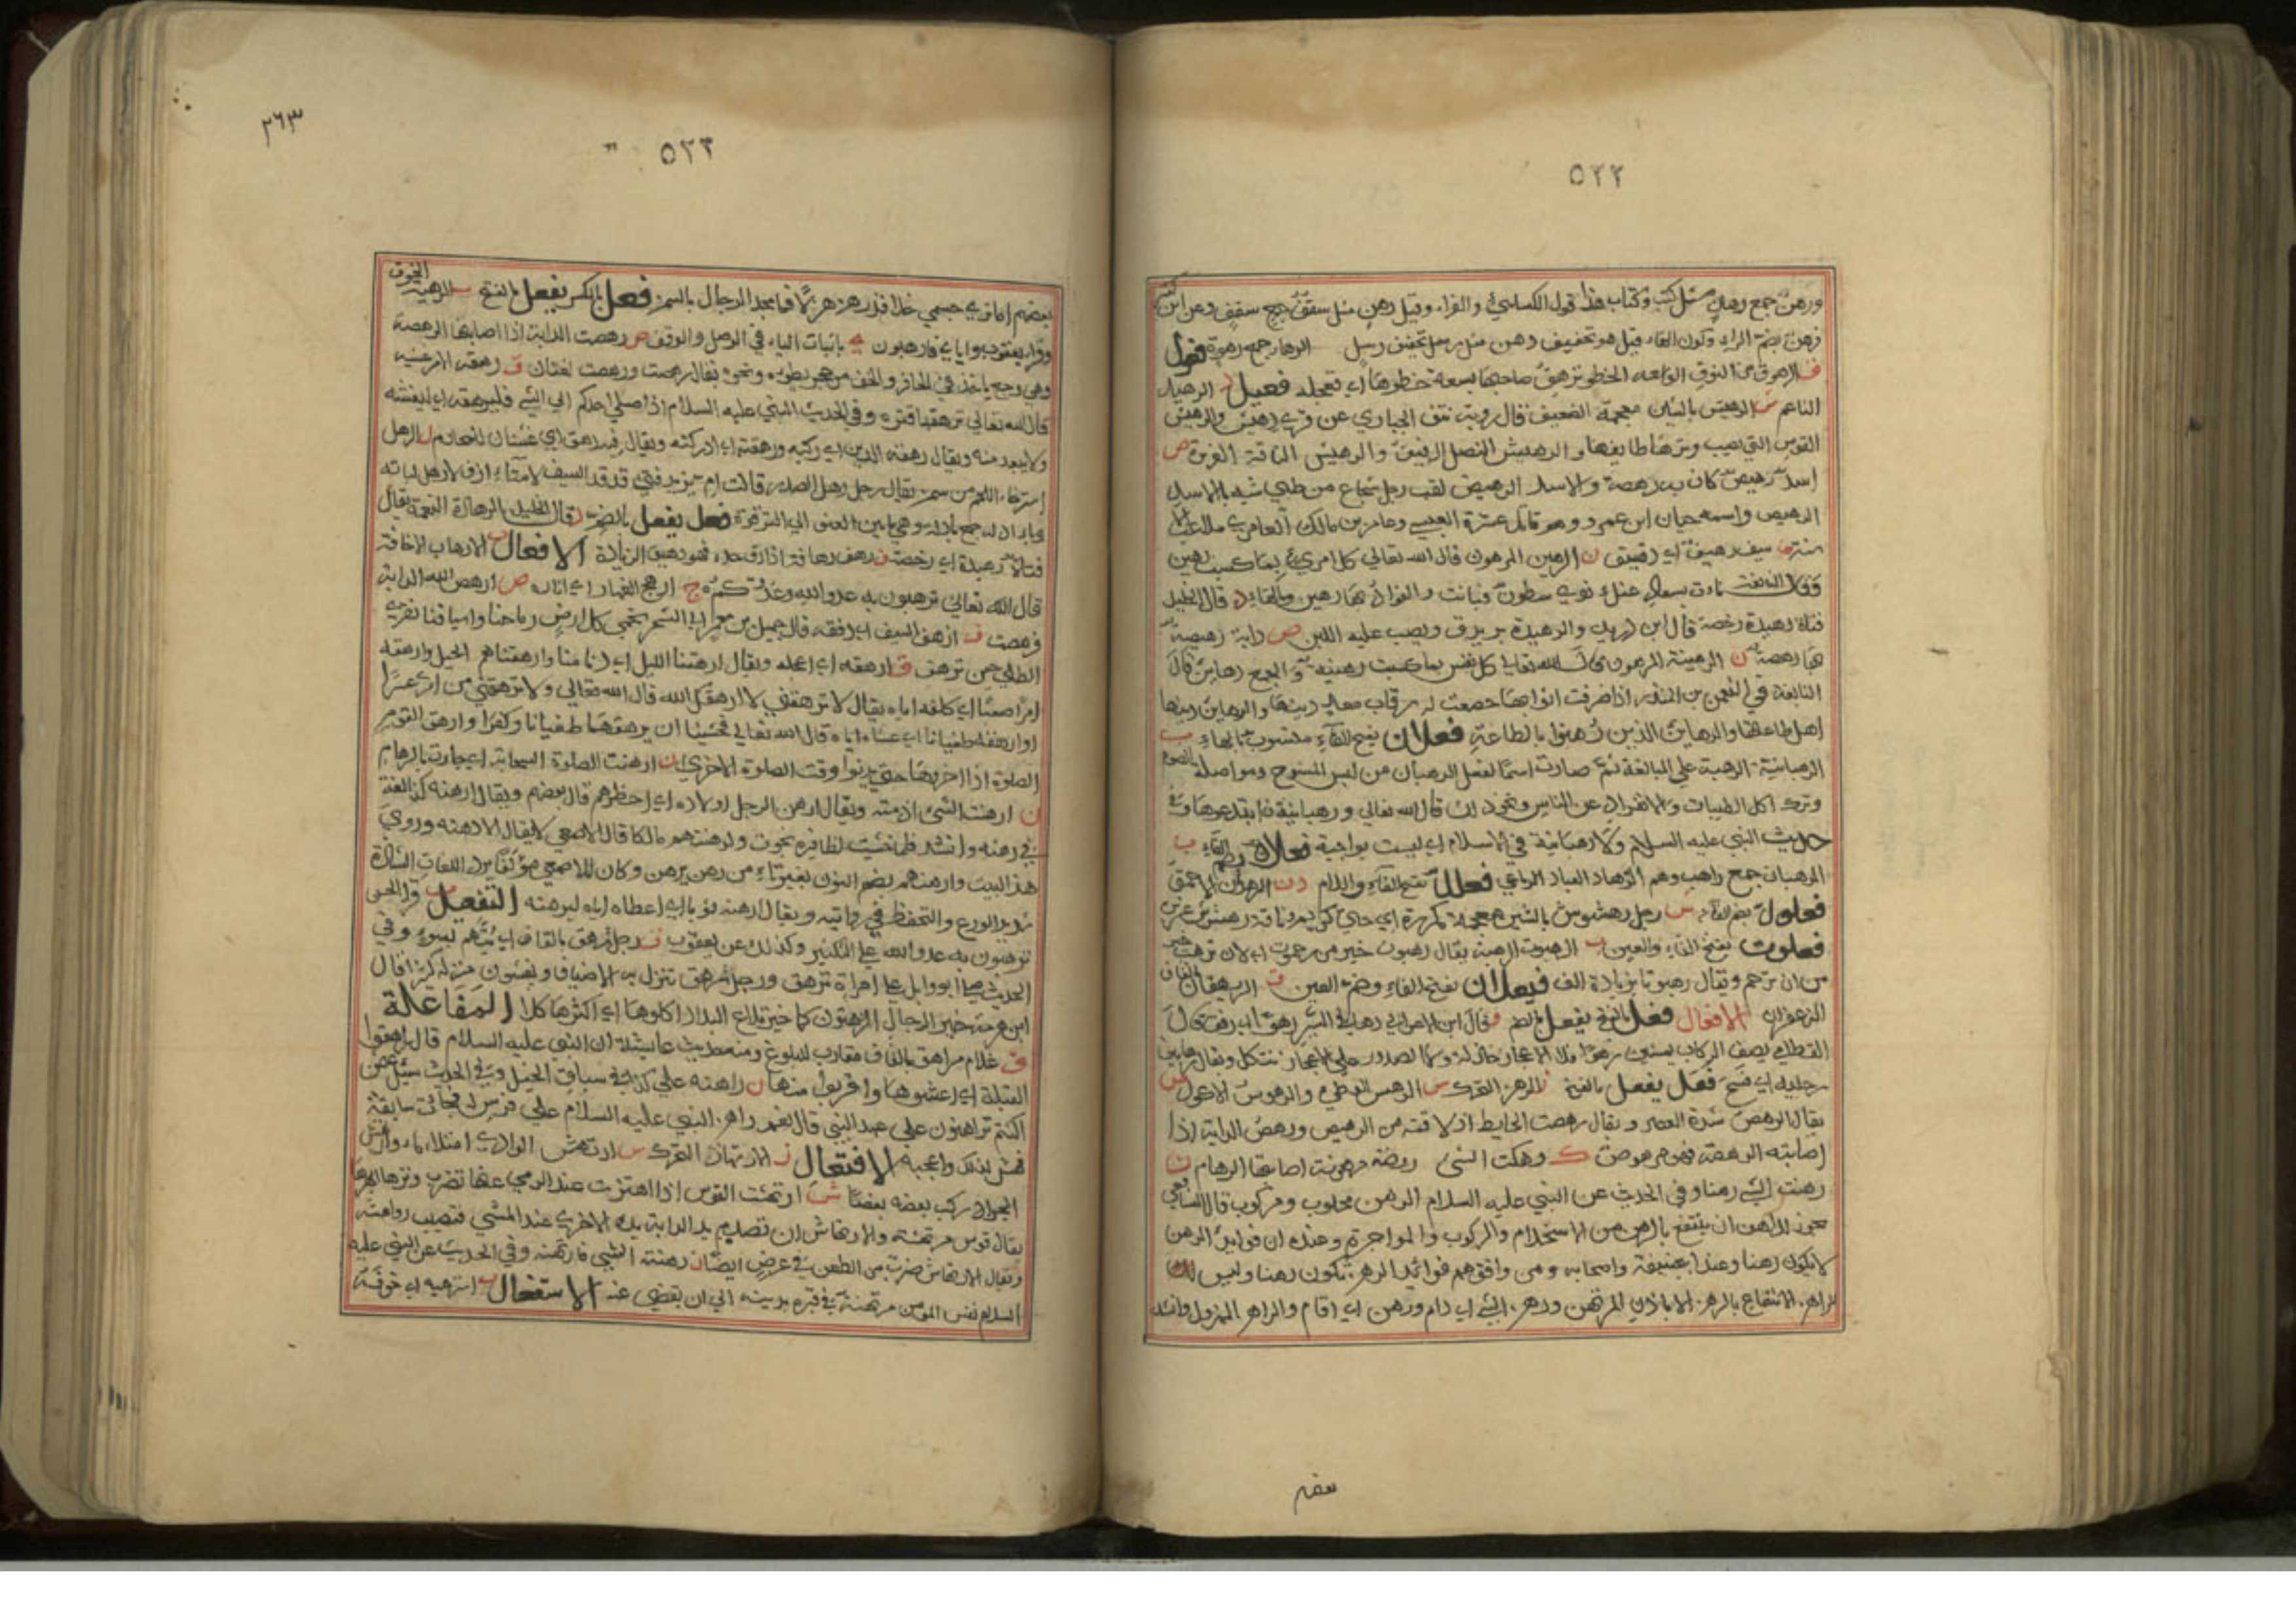 ٥٢٢
ورهن جمع رهان مثل كتب وكتاب هذا قول الكسائي والفراء وقيل رهن مثل سقف جمع سقف وعن ابن كثير
فرهن بضم الراء وسكون الهاء قيل هو تخفيف رهن مثل رسل تخفيف رسل الرها جمع رهوة فعول
ف الرهوق من النوق الواسعة الخطو ترهق صاحبها بسعة خطوها اي تعجله فعيل الرهيد
الناعم ش الرهيش بالشين معجمة الضعيف قال رؤبة نتف الحبارى عن قرى رهيش والرهيش
القوس التي يصيب وترها طايفها والرهيش النصل الرقيق والرهيش الناقة الغزيرة ص
اسد رهيص كان به رهصة والاسد الرهيص لقب رجل شجاع من طيي شبه بالاسد
الرهيص واسمه حيان ابن عمرو وهو قاتل عنترة العبسي وعامر بن مالك العامري ملاعب
سيف رهيف اي رقيق ن الرهين المرهون قال الله تعالى كل امري بما كسب رهين
وقال النابغة نات بسعاد عنك نوى شطون فبانت والفؤاد بها رهين وبالهاء د قال الخليل
فتاة رهيدة رخصة قال ابن دريد والرهيدة بر يدق ويصب عليه اللبن ص دابة رهيصة
بها رهصة ن الرهينة المرهون قال الله تعالى كل نفس بما كسبت رهينة والجمع رهاين قال
النابغة في النعمن بن المنذر
اهل طاعتها والرهاين الذين رهنوا بالطاعة فعلان بفتح الفاء منسوب بالهاء ب
الرهبانية الرهبة على المبالغة ثم صارت اسما لفعل الرهبان من لبس المسوح ومواصلة الصوم
وترك اكل الطيبات والانفراد عن الناس ونحو ذلك قال الله تعالى ورهبانية ابتدعوها وفي
حديث النبي عليه السلام ولا رهبانية في الاسلام اي ليست بواجبة فعلان بضم الفاء ب
الرهبان جمع راهب وهم الزهاد العباد الرباعي فعلل بفتح الفاء واللام
فعلول بضم الفاء ش رجل رهشوش بالشين معجمة مكررة اي حيي كريم وناقة رهشوش غزيرة
فعلوت بفتح الفاء والعين ب الرهبوت الرهبة يقال رهبوت خير من رحموت اي لان ترهب خير
من ان ترحم ويقال رهبوتا بزيادة الف فيعلان بفتح الفاء وضم العين ق الريهقان بالقاف
الزعفران الافعال فعل بالفتح يفعل بالضم و قال ابن الاعرابي رها في السير رهوا اي رفق قال
القطامي يصف الركاب يمشين رهوا فلا الاعجاز خاذلة ولا الصدور على الاعجاز تتكل ويقال رها بين
رجليه اي فتح فعل يفعل بالفتح ز الرهز التحرك س الرهس الوطء
يقال الرهص شدة العصر ويقال رهصت الحايط
اصابته الرهصة فهو مرهوص ك رهكت الشي روضة مرهومة اصابتها الرهام ن
رهنت الشي رهنا وفي الحديث عن النبي عليه السلام الرهن محلوب ومركوب قال الشافعي
يجوز للراهن ان ينتفع بالرهن من الاستخدام والركوب والمواجرة وعنده ان فوايد الرهن
لا يكون رهنا وعند ابي حنيفة واصحابه ومن وافقهم فوائد الرهن تكون رهنا وليس
للراهن الانتفاع بالرهن الا باذن المرتهن ورهن الشي اي دام ورهن اي اقام والراهن المهزول وانشد
٣٦٣
٥٢٣
بعضهم اما تري جسمي خلا قد رهن هزلا فما مجد الرجال بالسمن فعل بالكسر يفعل بالفتح ب الرهبة الخوف
وقرا يعقوب واياي فارهبون باثبات الياء في الوصل والوقف ص رهصت الدابة اذا اصابتها الرهصة
وهي وجع ياخذ في الحافر والخف من حجر يطؤه ونحوه يقال رهصت ورهصت لغتان ق رهقه الامر غشيه
قال الله تعالى ترهقها قترة وفي الحديث للنبي عليه السلام اذا صلى احدكم الى الشي فليرهقه اي ليغشه
ولا يبعد منه ويقال رهقه الدين اي ركبه ورهقته اي ادركته ويقال فيه رهق اي غشيان للمحارم ل الرهل
استرخاء اللحم من سمن يقال رجل رهل الصدر قالت ام يزيد فتى قد قد السيف لا متآزف ولا رهل لباته
وباد له جمع بادلة وهي ما بين العنق الى الترقوة فعل يفعل بالضم د قال الخليل الرهادة النعمة يقال
فتاة رهيدة اي رخصة ف رهف رهافة اذا رق حده فهو رهيف الزيادة الافعال ب الارهاب الاخافة
قال الله تعالى ترهبون به عدو الله وعدوكم ج ارهج الغبار اي اثاره ص ارهص الله الدابة
فرهصت ف ارهف السيف اي رققه
الطلى حين ترهف ق ارهقه اي اعجله ويقال ارهقنا الليل اي دنا منا وارهقناهم الخيل وارهقه
امرا صعبا اي كلفه اياه يقال لا ترهقني لا ارهقك الله قال الله تعالى ولا ترهقني من امري عسرا
وارهقه طغيانا اي غشاه اياه قال الله تعالى فخشينا ان يرهقهما طغيانا وكفرا وارهق القوم
الصلوة اذا اخروها حتى يدنوا وقت الصلوة الاخرى م ارهمت السحابة اي جاءت بالرهام
ن ارهنت الشي ادمته ويقال ارهن الرجل اولاده اي اخطرهم قال بعضهم ويقال ارهنه كذا لغة
في رهنه وانشد فلما خشيت اظافيره نجوت وارهنتهم مالكا قال الاصمعي لا يقال الا رهنه وروى
هذا البيت وارهنهم بضم النون بغير تاء من رهن يرهن وكان الاصمعي
شديد الورع والتحفظ في روايته ويقال ارهنه ثوبا اي اعطاه اياه ليرهنه التفعيل ب قرا الحسن
ترهبون به عدو الله على التكثير وكذلك عن يعقوب ق رجل مرهق بالقاف اي يتهم بسوء وفي
الحديث صلى ابو وايل على امراة ترهق ورجل مرهق تنزل به الاضياف ويغشون منزله كثيرا قال
ابن هرمة خير الرجال المرهقون كما خير تلاع البلاد اكلؤها اي اكثرها كلا المفاعلة
ق غلام مراهق بالقاف مقارب للبلوغ ومنه حديث عايشة ان النبي عليه السلام قال ارهقوا
القبلة اي اغشوها واقربوا منها ن راهنه على كذا في سباق الخيل وفي الحديث سئل بعضهم
اكنتم تراهنون على عهد النبي قال نعم راهن النبي عليه السلام على فرس له فجاءت سابقة
فهش لذلك واعجبه الافتعال ز الارتهاز التحرك س ارتهس الوادي امتلاء ماء وارتهس
الجراد ركب بعضه بعضا ش ارتهشت القوس اذا اهتزت عند الرمي عنها
يقال قوس مرتهشة والارتهاش ان تصدم يد الدابة يده الاخرى عند المشي فتصيب رواهشه
ويقال الارتهاش ضرب من الطعن في عرض ايضا ن رهنته الشي فارتهنه وفي الحديث عن النبي عليه
السلام نفس المومن مرتهنة في قبره بدينه الى ان يقضى عنه الاستفعال ب استرهبه اي خوفه
بعضهم